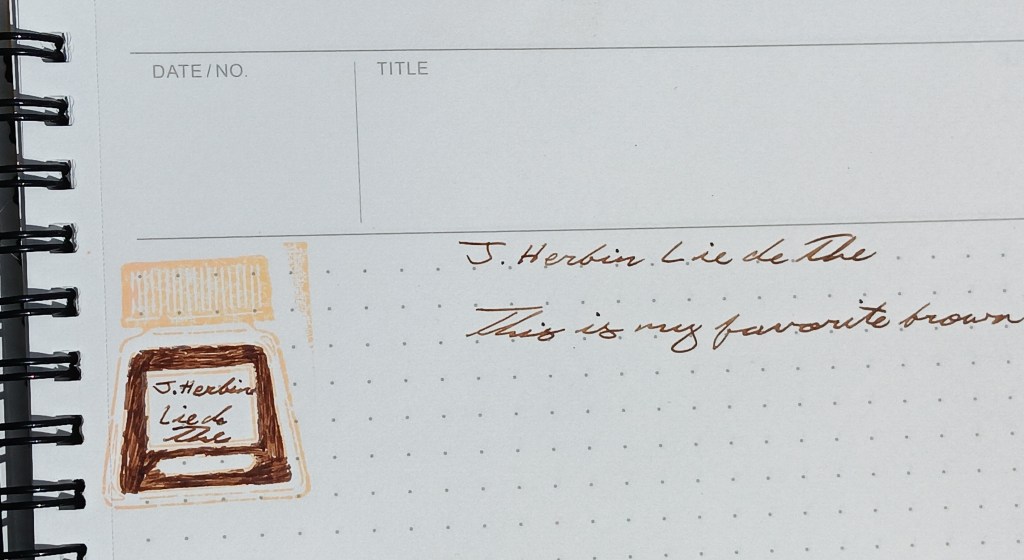 DATE/NO.
TITLE
J. Herbin Lie de The
This is my favorite brown
J. Herbin
Lie de
The